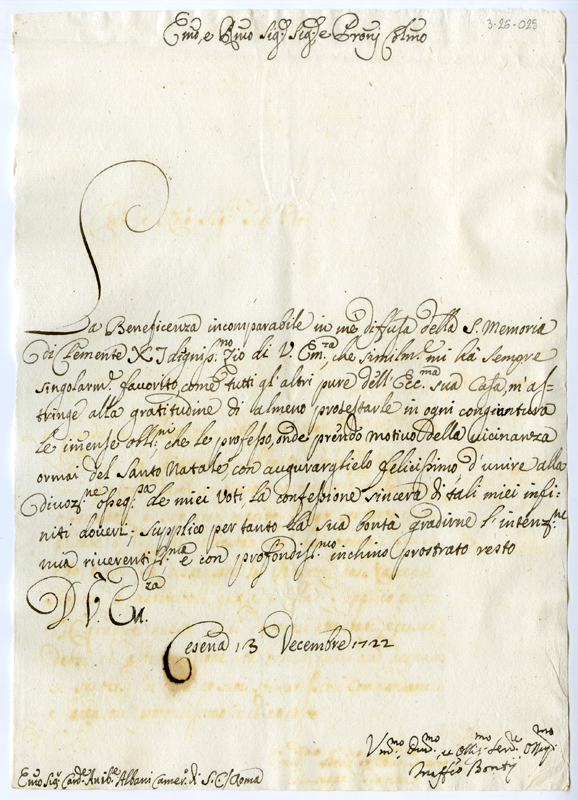 3-26-025
Emo, e Rmo Sig.r Sig.r e Pron Colmo
La Beneficenza incomparabile in mè diffusa della S. Memoria
di Clemente XI digniss.mo Zio di V. Em.za, che similm.te mi hà sempre
singolarm.te favorito, come tutti gl'altri pure dell'Ecc.ma sua Casa, m'as=
tringe alla gratitudine di almeno protestarle in ogni congiuntura
le imense obbl.ni che le professo, onde prendo motivo della vicinanza
ormai del Santo Natale con augurarglielo felicissimo d'unire alla
divoz.ne osseq.sa de miei voti la confessione sincera di tali miei infi=
niti doveri; supplico per tanto la sua bontà gradirne l'intenz.ne
mia riverentiss.ma e con profondiss.mo inchino prostrato resto
D. V. Em.za
Cesena 13 Decembre 1722
Vmo. Dmo. e Obbl.mo Ser.re Osseq.mo
Bontij
Emo Sig.r Card.e Anib.e Albani Camer.o di S. C. Roma